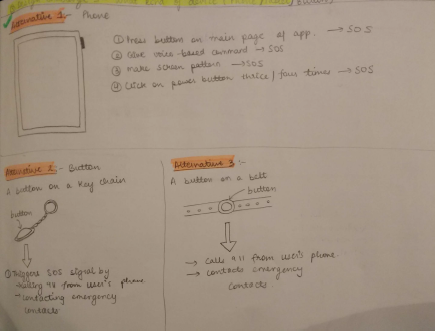 Alternative 1:- Phone
① Press button on main page of app. → SOS
② Give voice-based command → SOS
③ Make screen pattern → SOS
④ Click on power button thrice/four times → SOS
Alternative 2:- Button
A button on a key chain
button
① Triggers SOS signal by
→ calling 911 from user's phone
→ contacting emergency
contacts
Alternative 3:-
A button on a belt
button
→ Calls 911 from user's phone.
→ contacts emergency
contacts